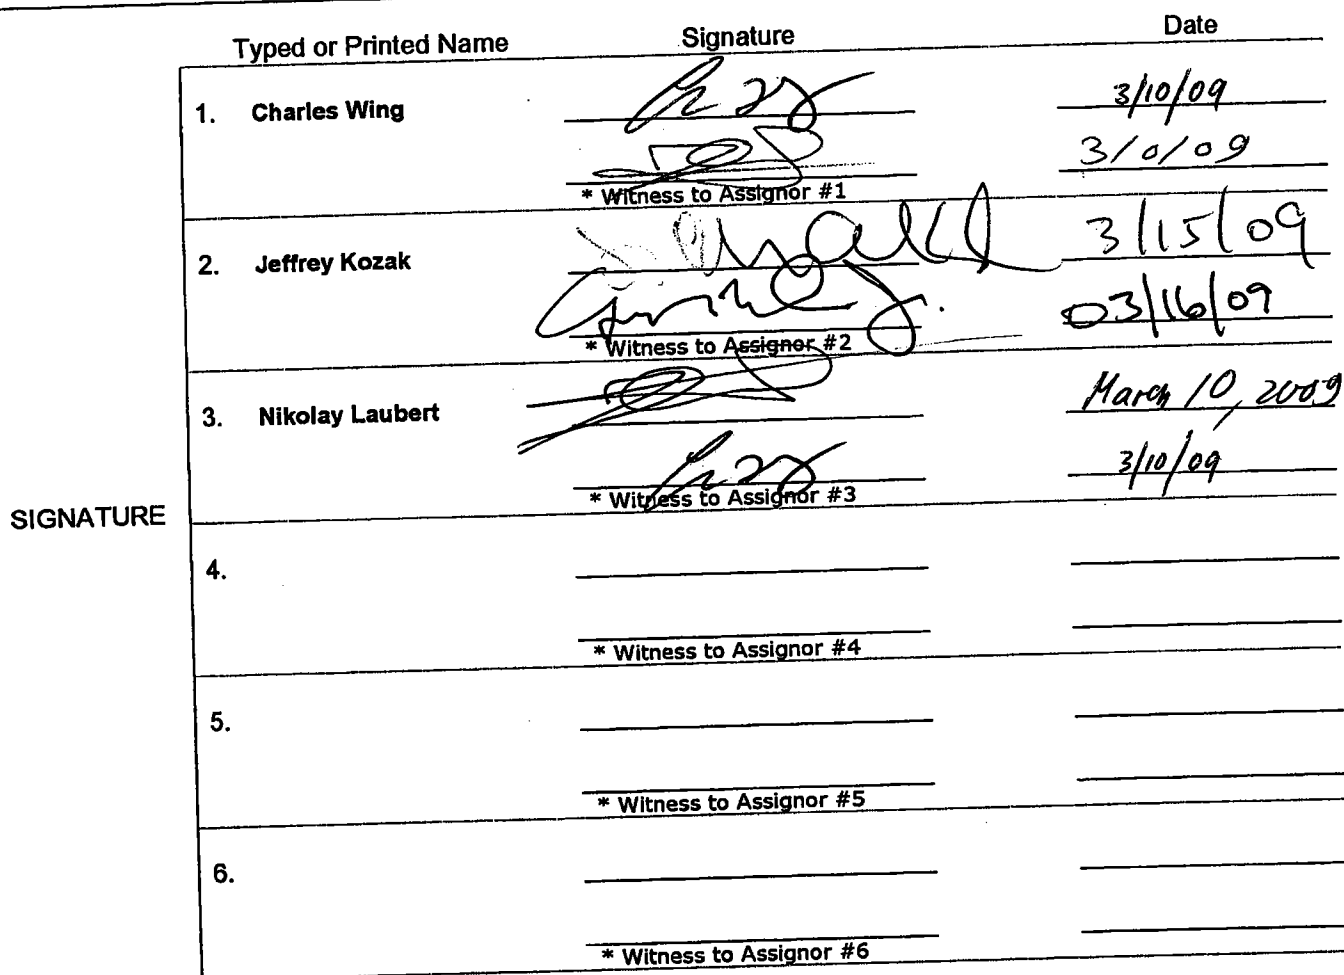 Typed or Printed Name Signature Date
1. Charles Wing 3/10/09
3/10/09
* Witness to Assignor #1
2. Jeffrey Kozak 3/15/09
03/16/09
* Witness to Assignor #2
3. Nikolay Laubert March 10, 2009
3/10/09
* Witness to Assignor #3
SIGNATURE
4.
* Witness to Assignor #4
5.
* Witness to Assignor #5
6.
* Witness to Assignor #6